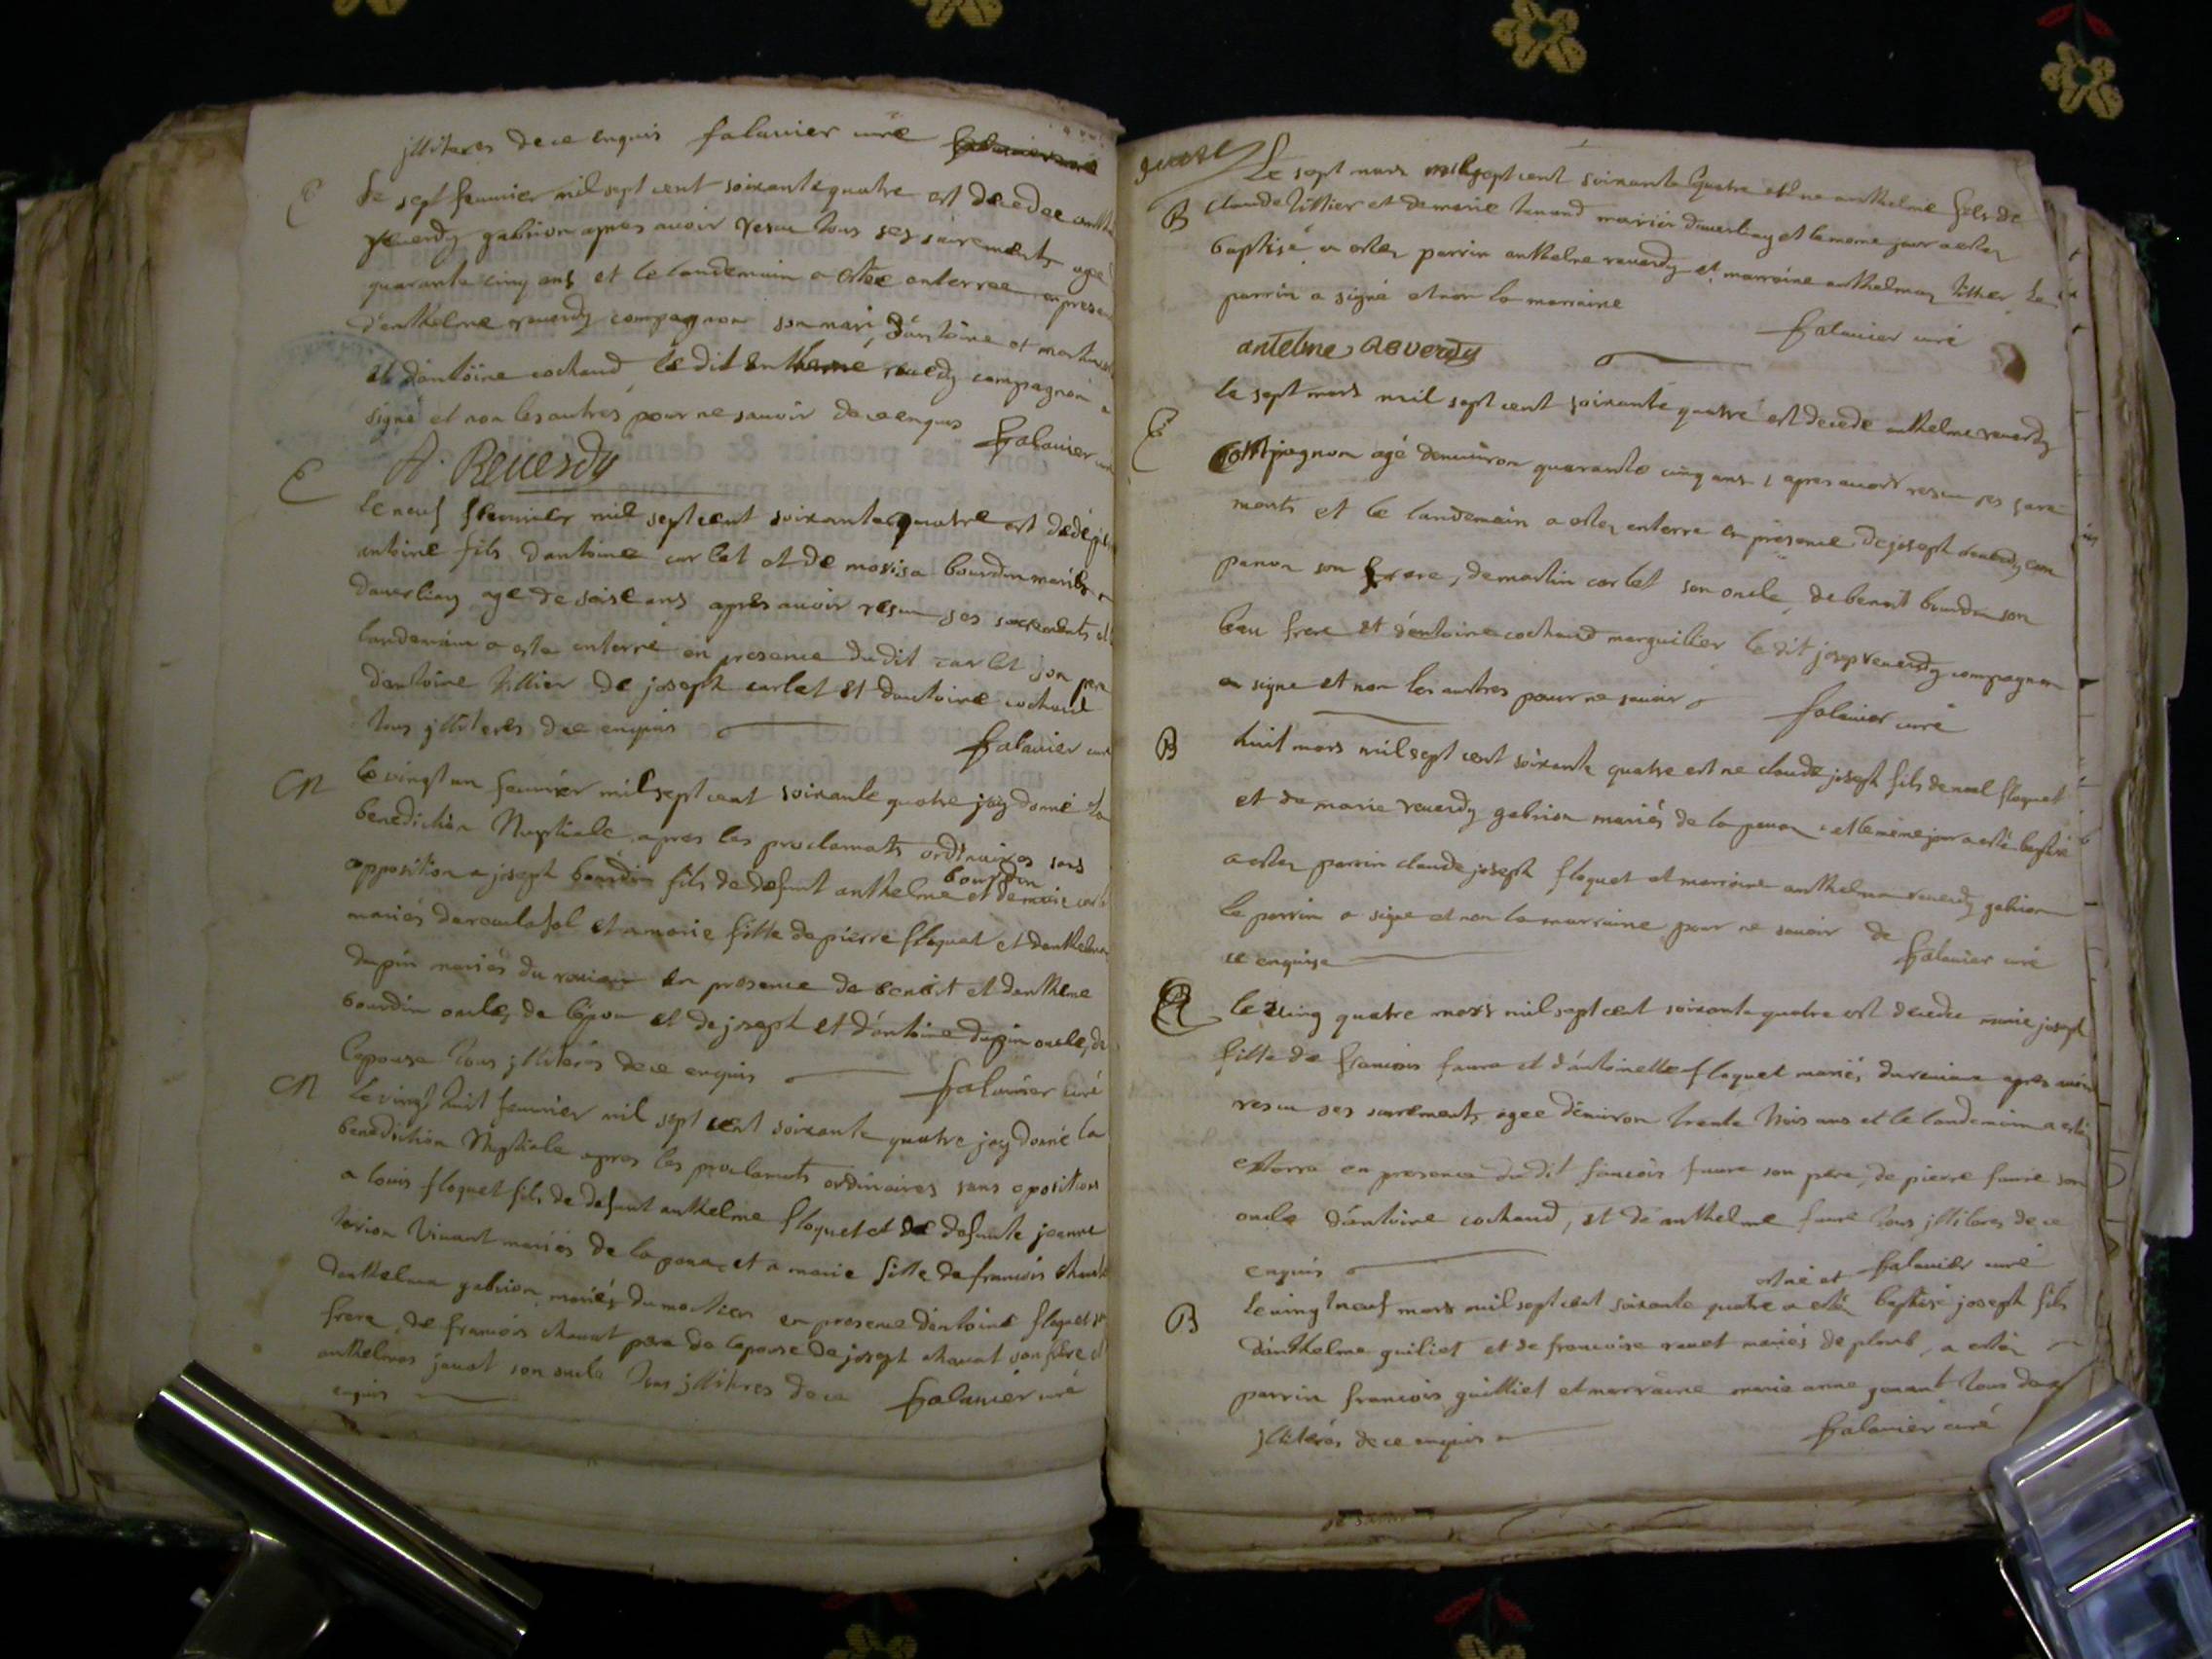 jlliteres de ce enquis falavier curé
E
Le sept fevrier mil sept cent soixante quatre est decedee
reverdy gabrion apres avoir resu tous ses sacrements agé
quarante cinq ans et le landemain a estee enterree en presen
d'anthelme reverdy compagnon son mari, d'antoine et
et d'antoine cochaud le dit anthelme reverdy compagnon a
signé et non les autres pour ne savoir de ce enquis falavier curé
A. Reverdy
E
le neuf fevrier mil sept cent soixante quatre est
antoine fils d'antoine carlet et de bourdin mariés
daverliaz agé de seise ans apres avoir resu ses sacrements et
landemain a este enterré en presence du dit carlet son pere
d'antoine tillier de joseph carlet et d'antoine cochaud
tous jlliteres de ce enquis falavier curé
M
le vingt un fevrier mil sept cent soixante quatre jay donné la
benediction Nuptiale apres les proclamats ordinaires sans
opposition a joseph bourdin fils de defunt anthelme bourdin et de marie
mariés de et a marie fille de pierre floquet et d'anthelma
dupin mariés du en presence de benoit et d'anthelme
bourdin oncles de l'epou et de joseph et d'antoine dupin oncles de
l'epouse tous jlliterés de ce enquis falavier curé
M
le vingt huit fevrier mil sept cent soixante quatre jay donné la
benediction Nuptiale apres les proclamats ordinaires sans oposition
a louis floquet fils de defunt anthelme floquet et de defunte jeanne
vivant mariés de la et a marie fille de francois
d'anthelma gabrion mariés du en presence d'antoine floquet
frere, de francois chavat pere de l'epouse de joseph chavat son frere et
anthelme son oncle tous jlliteres de ce
enquis falavier curé
B
Le sept mars mil sept cent soixante quatre est ne anthelme fils de
claude tillier et de marie mariés d'averliaz et le meme jour a estez
baptisé a estez parrin anthelme reverdy et marraine anthelmaz tillier le
parrin a signé et non la marraine
falavier curé
antelme Reverdy
E
le sept mars mil sept cent soixante quatre est decede anthelme reverdy
Compagnon agé d'environ quarante cinq ans, apres avoir resu ses sacre
ments et le landemain a estez enterre en presence de joseph reverdy com
panon son frere, de martin carlet son oncle, de benoit bourdin son
beau frere et d'antoine cochaud marguillier le dit josep reverdy compagnon
a signe et non les autres pour ne savoir falavier curé
B
huit mars mil sept cent soixante quatre est ne claude joseph fils de noel floquet
et de marie reverdy gabrion mariés de la et le meme jour a esté baptisé
a estez parrin claude joseph floquet et marraine anthelma reverdy gabrion
le parrin a signe et non la marraine pour ne savoir de
ce enquise falavier curé
le ving quatre mars mil sept cent soixante quatre est decedee marie joseph
fille de francois favre et d'antoinette floquet mariés apres avoir
resu ses sacrements agee d'environ trente trois ans et le landemain a estez
enterra en presence du dit francois favre son pere, de pierre favre son
oncle d'antoine cochaud, et de anthelme favre tous jlliteres de ce
enquis falavier curé
B
le vingt neuf mars mil sept cent soixante quatre est né et a estez baptisé joseph fils
d'anthelme guiliet et de francoise mariés de plomb, a estez
parrin francois guilliet et marraine marie anne tous deux
jlliterés de ce enquis falavier curé